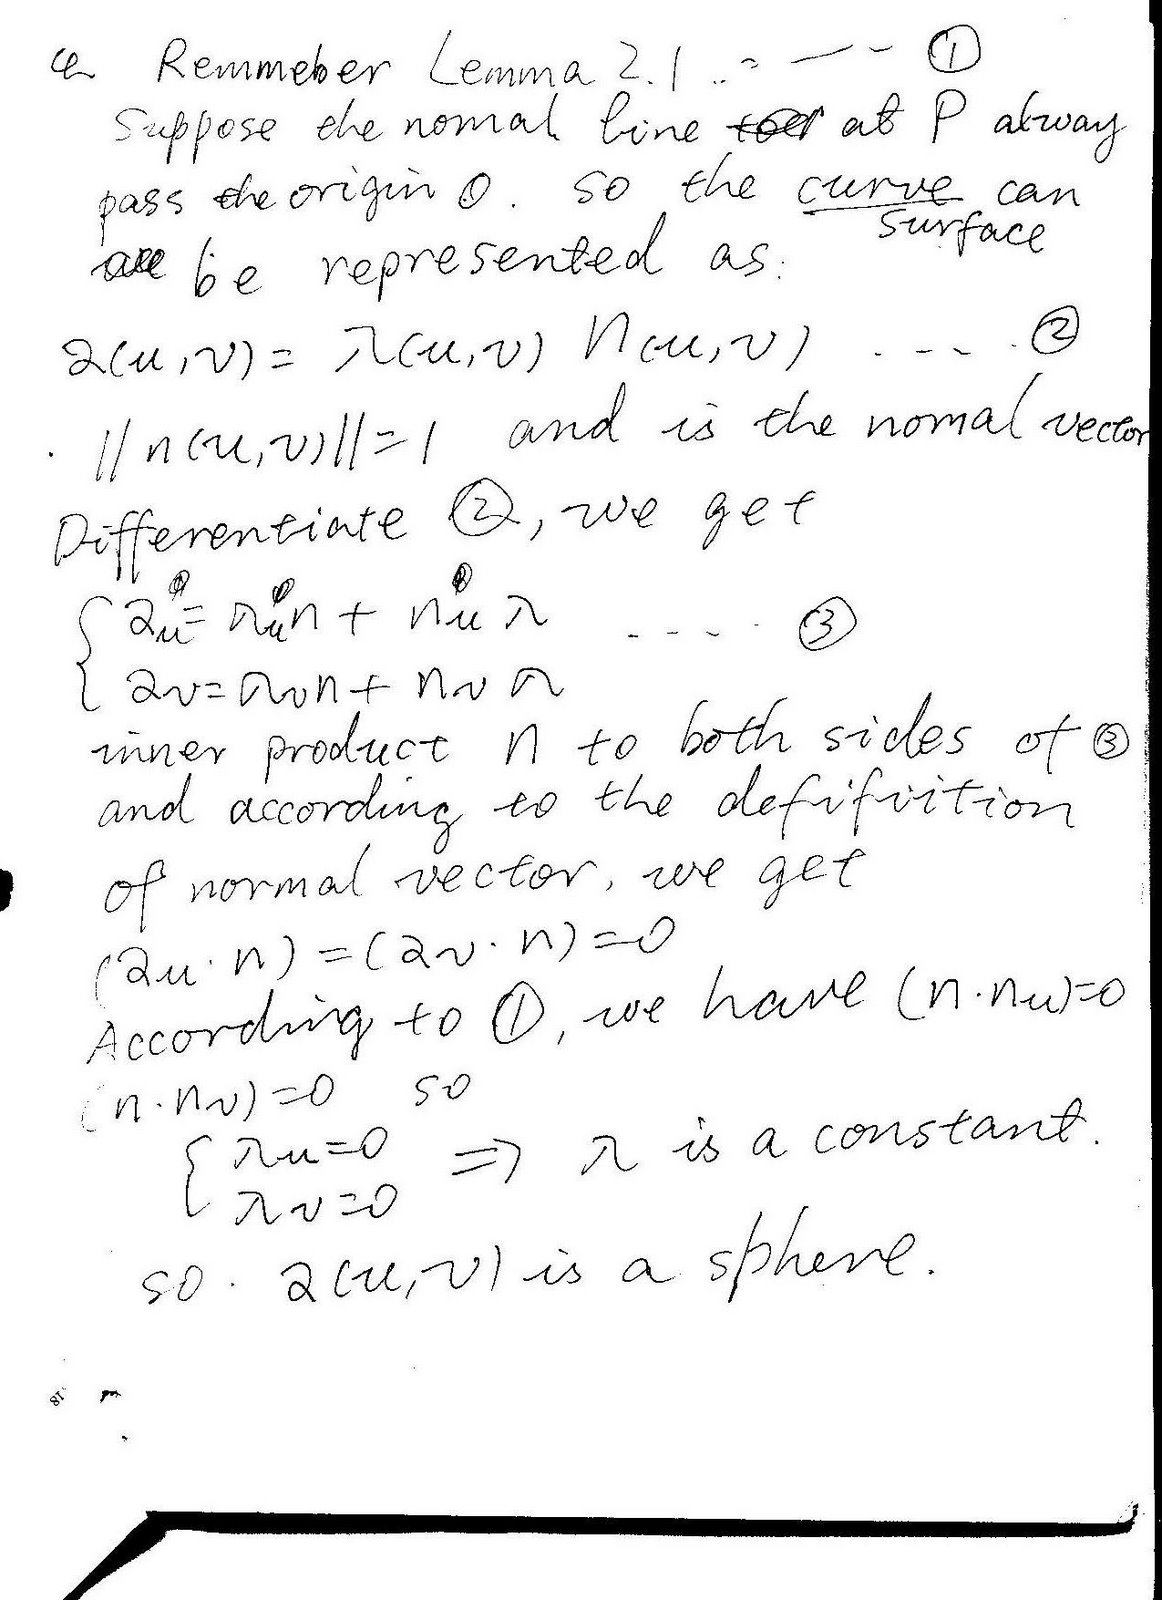 Remmeber Lemma 2.1 ..- — - ①
Suppose the nomal line at P alway
pass the origin O. so the curve can
surface
be represented as:
a(u,v) = λ(u,v) n(u,v) .... ②
. ||n(u,v)||=1 and is the nomal vector
Differentiate ②, we get
{ au = λu n + nu λ .... ③
av = λv n + nv λ
inner product n to both sides of ③
and according to the defifvition
of normal vector, we get
(au · n) = (av · n) = 0
According to ①, we have (n·nu)=0
(n·nv)=0 so
{ λu=0 => λ is a constant.
λv=0
so . a(u,v) is a sphere.
18